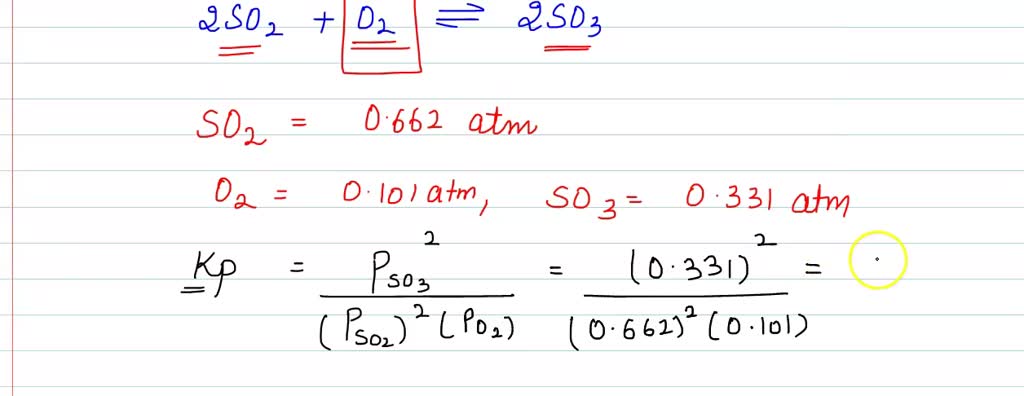 2SO₂ + O₂ ⇌ 2SO₃
SO₂ = 0.662 atm
O₂ = 0.101 atm, SO₃ = 0.331 atm
Kp = P_SO₃² / (P_SO₂)² (P_O₂) = (0.331)² / (0.662)² (0.101) =